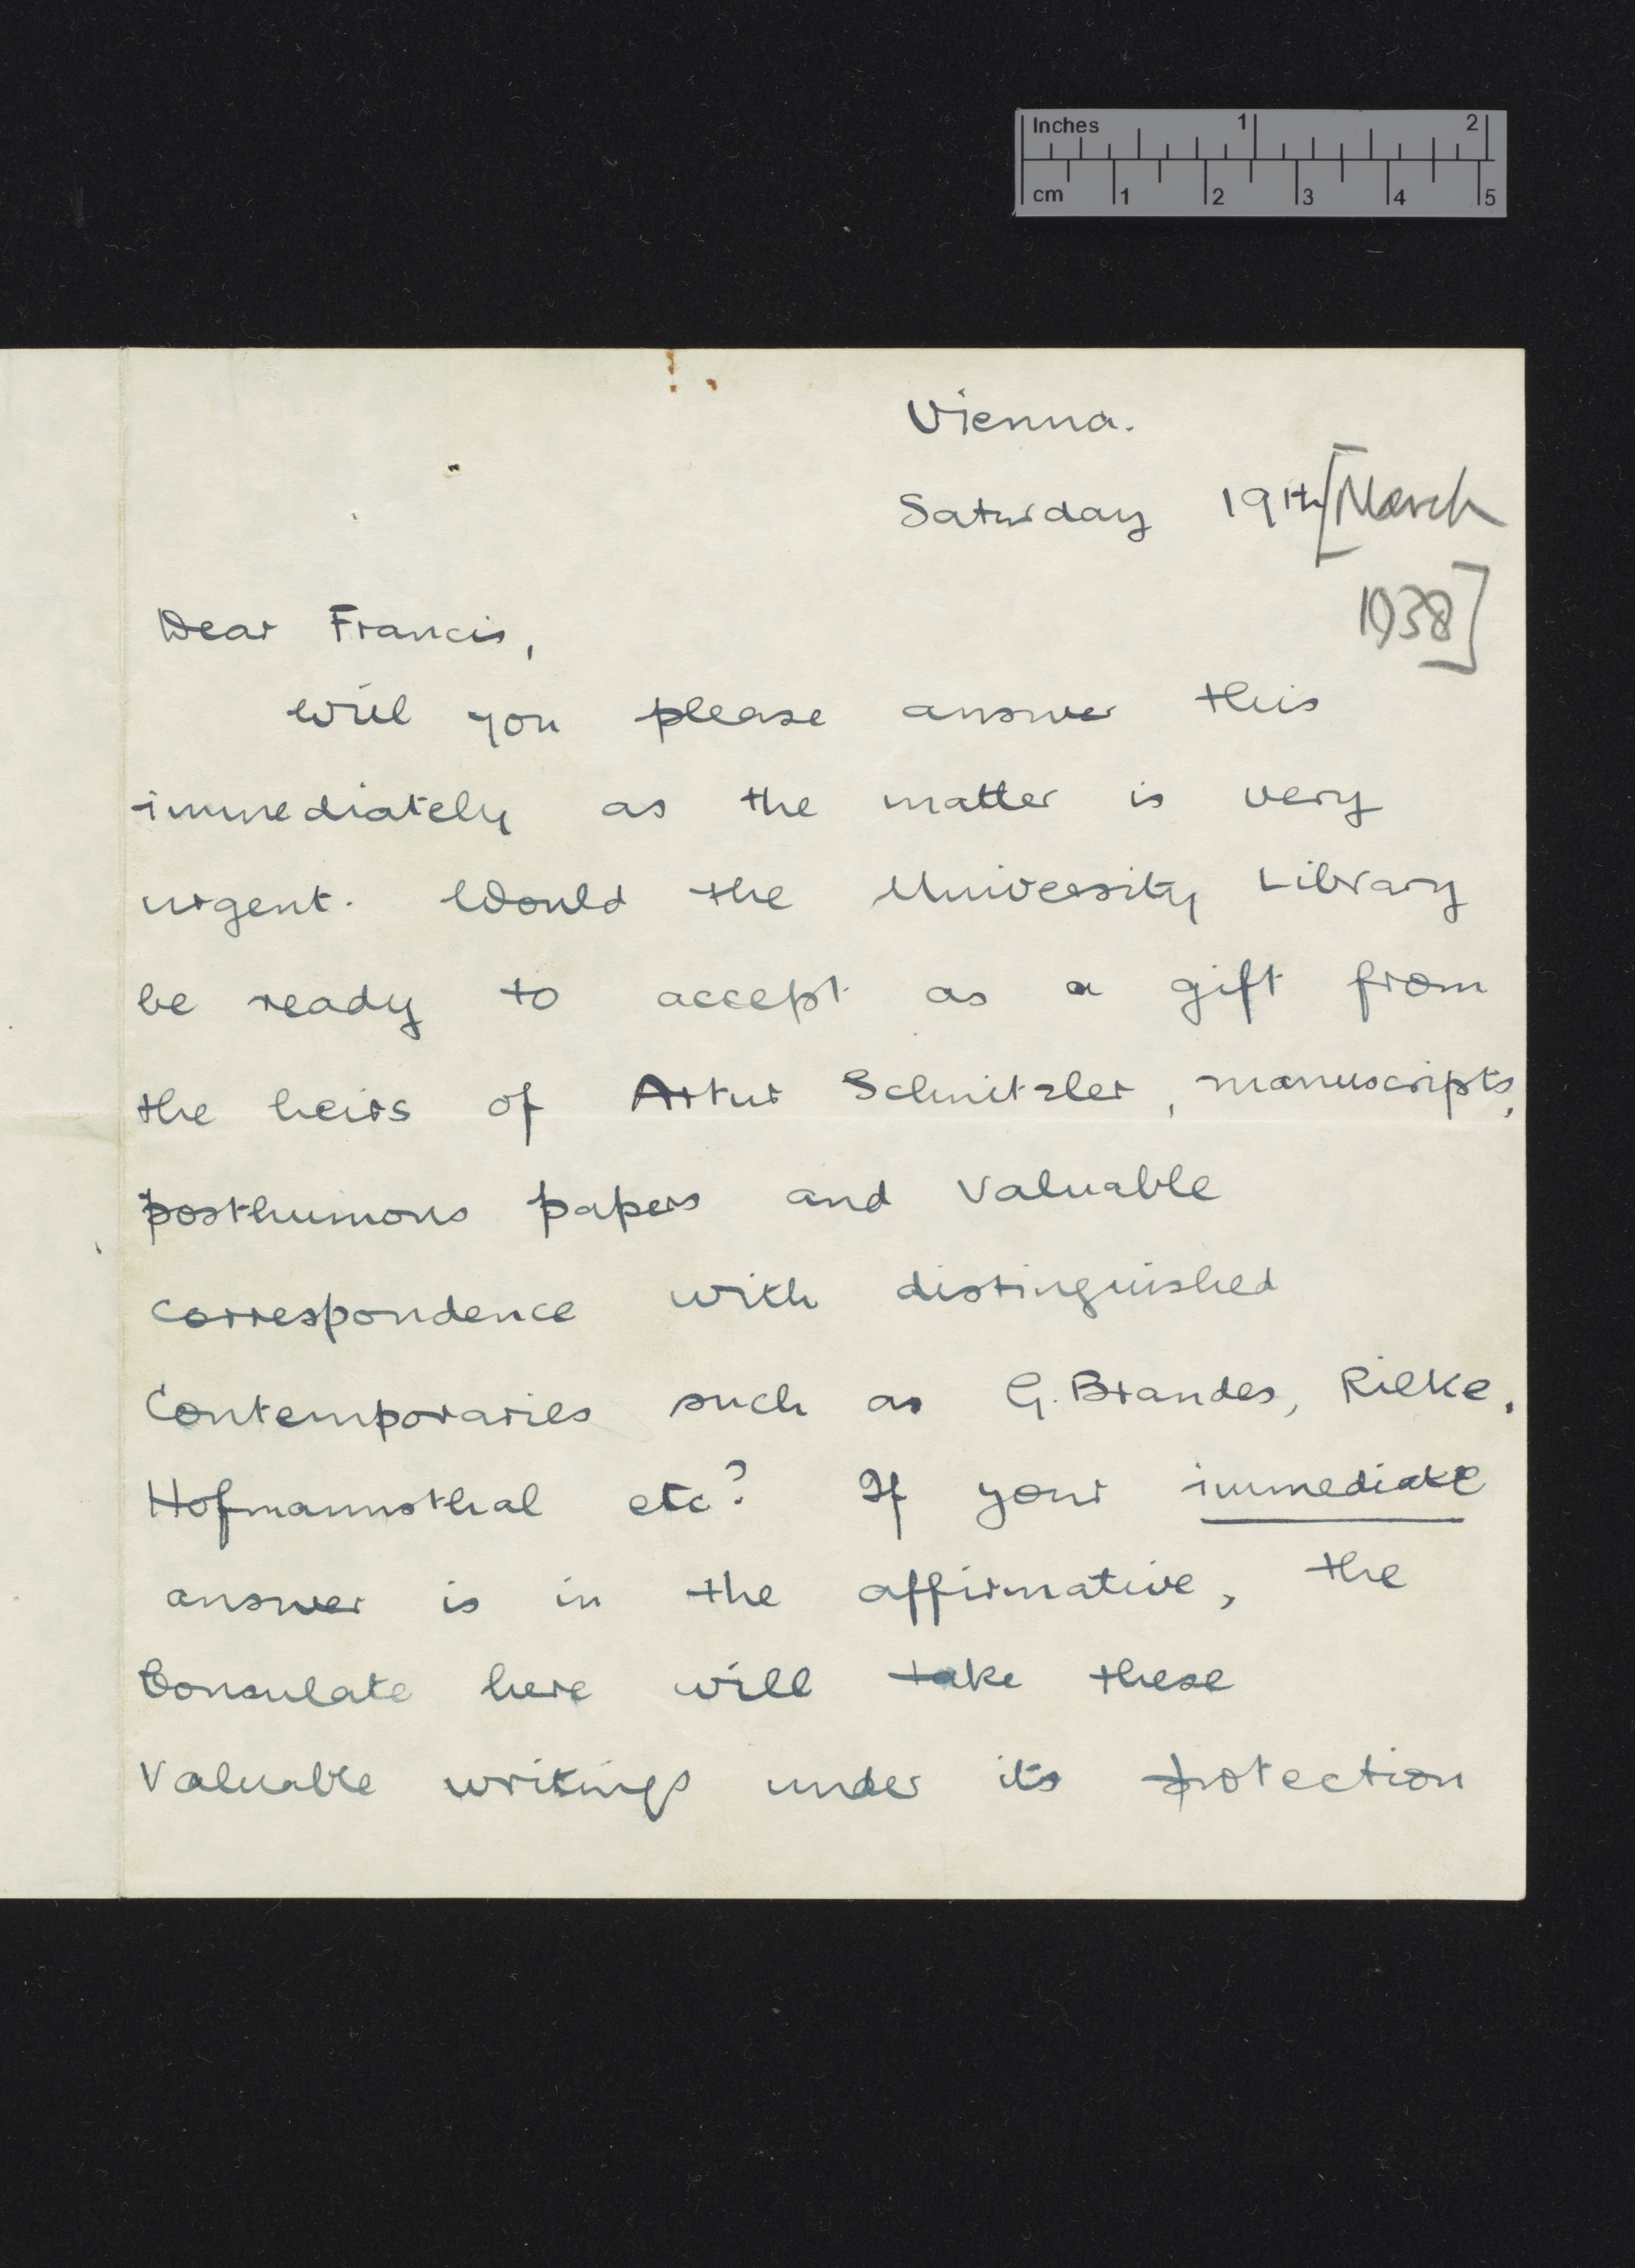 Inches 1 2
cm 1 2 3 4 5
Vienna.
Saturday 19th [March
1938]
Dear Francis,
Will you please answer this
immediately as the matter is very
urgent. Would the University Library
be ready to accept as a gift from
the heirs of Artur Schnitzler, manuscripts,
posthumous papers and valuable
correspondence with distinguished
contemporaries such as G. Brandes, Rilke,
Hofmannsthal etc? If your immediate
answer is in the affirmative, the
Consulate here will take these
valuable writings under its protection